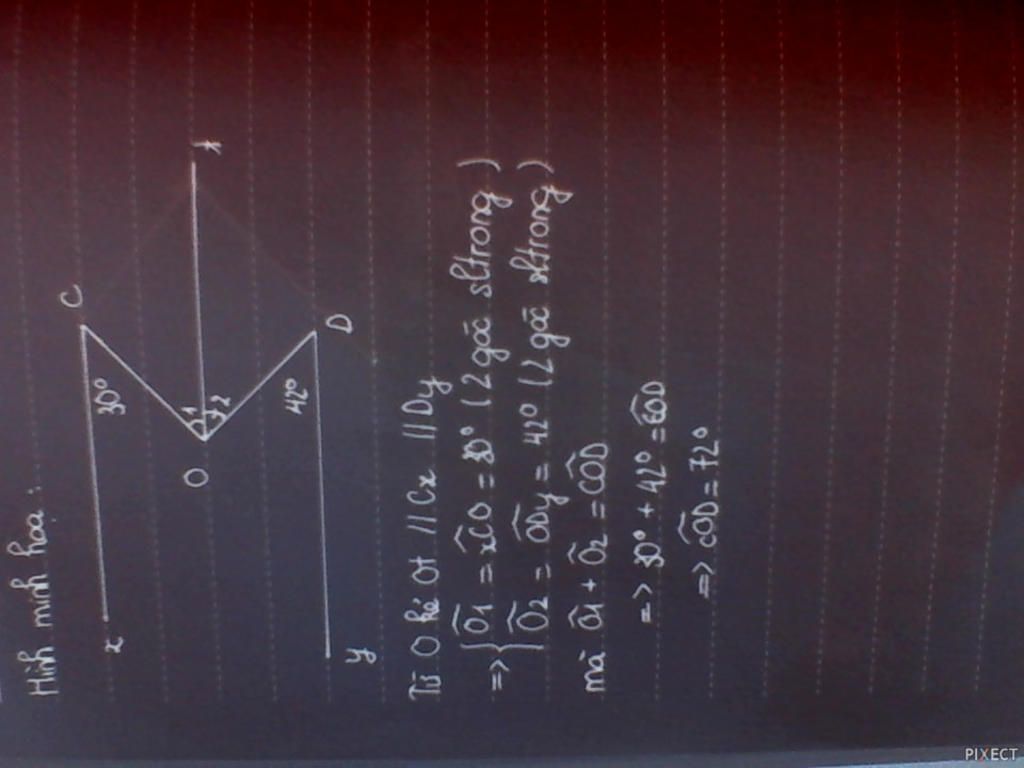 Hình minh hoạ :
x
C
30°
O
1
2
t
42°
y
D
Từ O kẻ Ot // Cx // Dy
=> { Ô1 = xĈO = 30° ( 2 góc sltrong )
Ô2 = ODy = 42° ( 2 góc sltrong )
mà Ô1 + Ô2 = CÔD
=> 30° + 42° = CÔD
=> CÔD = 72°
PIXECT